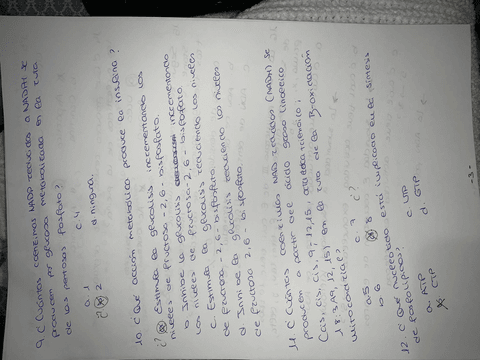 9. ¿Cuántos coenzimas NADP reducidos o NADPH se
producen por glucosa metabolizada en la ruta
de las pentosas fosfato?
a. 1 c. 4
b. 2 d. ninguna.
10. ¿Qué acción metabólica produce la insulina?
a. Estimula la glucólisis incrementando los
niveles de fructosa-2,6-bisfosfato.
b. Inhibe la glucólisis incrementando
los niveles de fructosa-2,6-bisfosfato
c. Estimula la glucólisis reduciendo los niveles
de fructosa-2,6-bisfosfato.
d. Inhibe la glucólisis reduciendo los niveles
de fructosa 2,6-bisfosfato.
11. ¿Cuántos coenzimas NAD reducidos (NADH) se
producen a partir del ácido graso linoleico
(cis, cis, 9-12,
18:2 Δ9,12) en la ruta de la β-oxidación
mitocondrial?
a. 5 c. 7
b. 6 8
12. ¿Qué nucleótido está implicado en la síntesis
de fosfolípidos?
a. ATP c. UTP
CTP d. GTP.
-3-